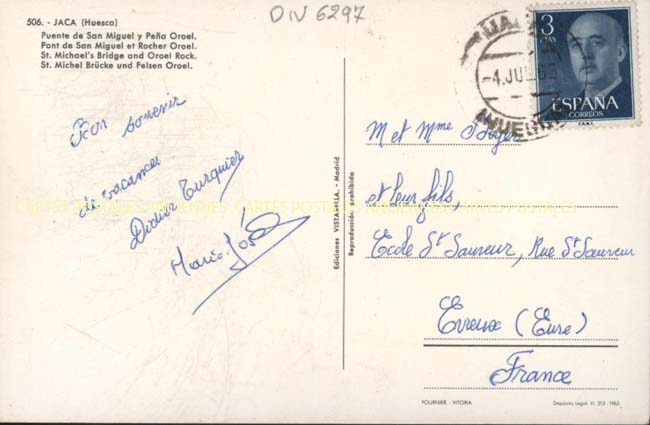 DIV 6297
506. - JACA (Huesca)
Puente de San Miguel y Peña Oroel.
Pont de San Miguel et Rocher Oroel.
St. Michael's Bridge and Oroel Rock.
St. Michel Brücke und Felsen Oroel.
JACA
-4 JUL 6
HUESCA
3
PTAS
ESPAÑA
CORREOS
F.N.M.T.
Bon souvenir
de vacances
Didier Turquier
Marie-José
Ediciones VISTABELLA. - Madrid
Reproducción prohibida
M et Mme
et leur fils,
Ecole St Sauveur, Rue St Sauveur
Evreux (Eure)
France
FOURNIER. - VITORIA
Depósito Legal: VI. 312 - 1963